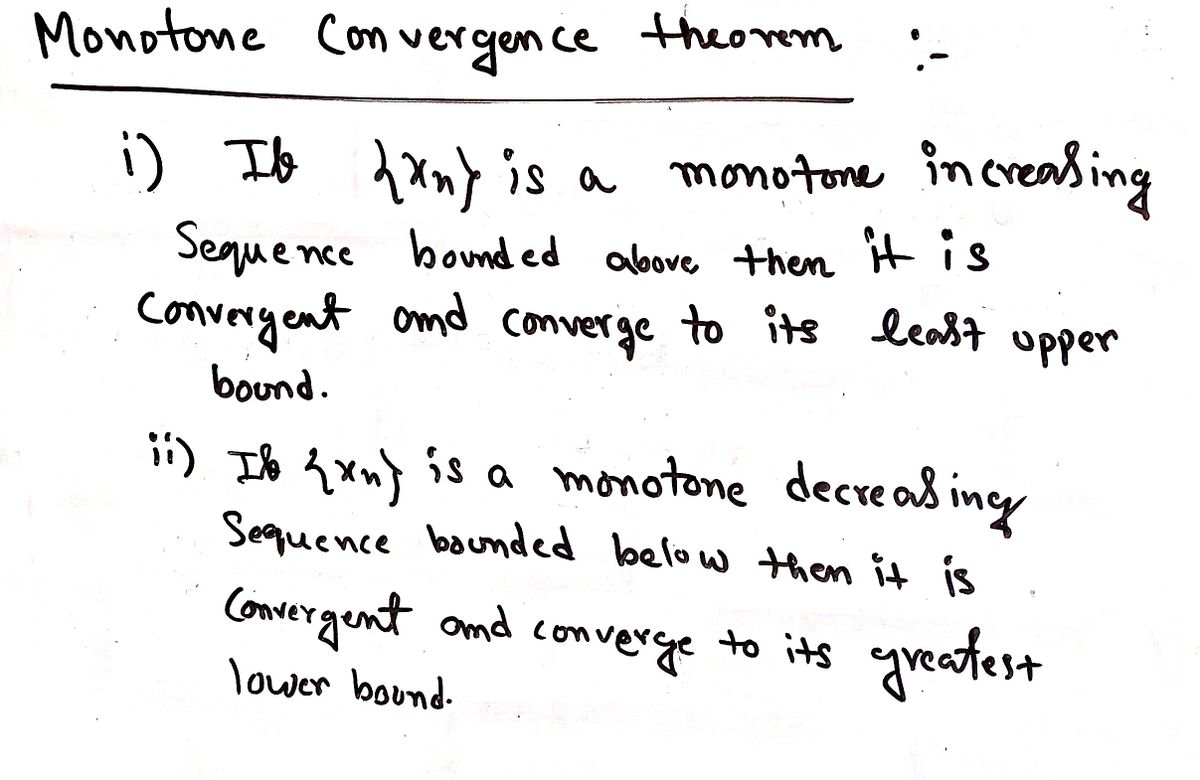 Monotone Convergence theorem :-
i) If {xn} is a monotone increasing
Sequence bounded above then it is
Convergent and converge to its least upper
bound.
ii) If {xn} is a monotone decreasing
Sequence bounded below then it is
Convergent and converge to its greatest
lower bound.